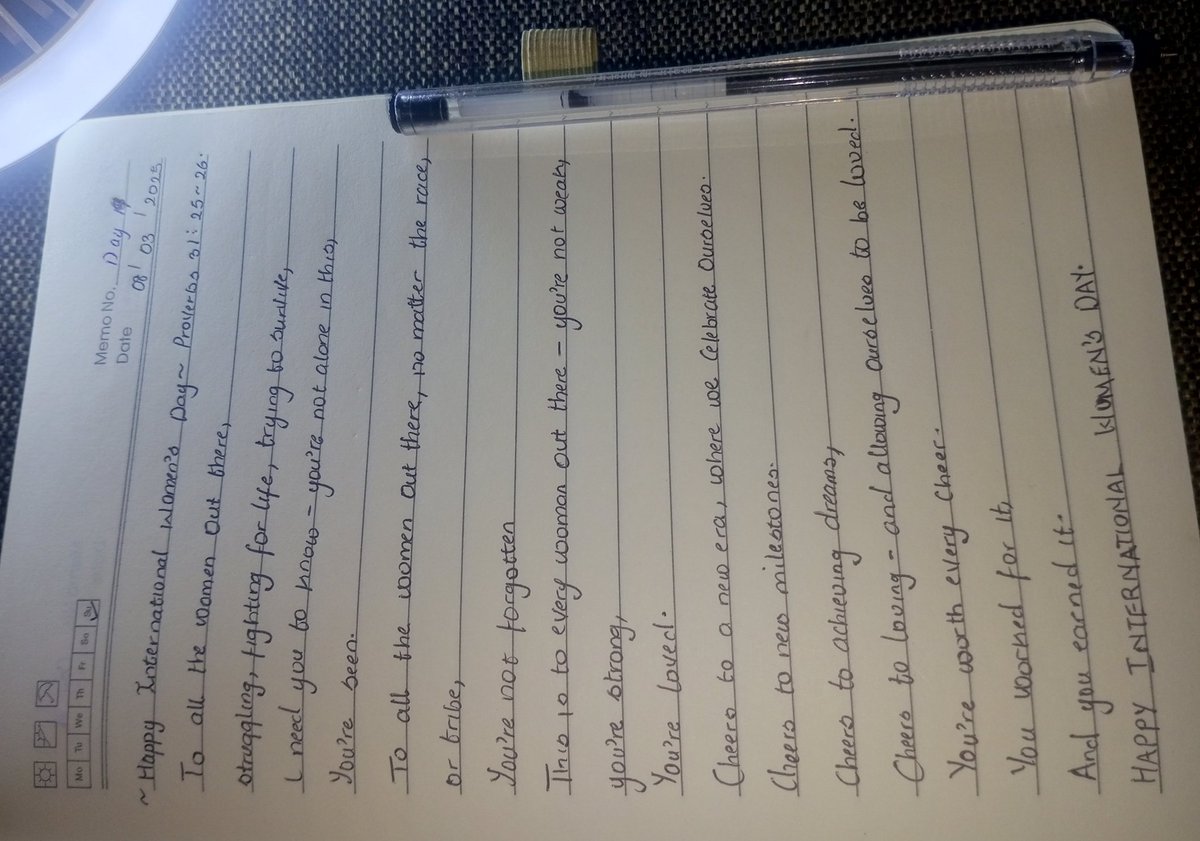 Memo No. Day
Date 08 / 03 / 2025
Mo Tu We Th Fr Sa Su
~ Happy International Women's Day ~ Proverbs 31:25~26.
To all the women out there,
struggling, fighting for life, trying to survive,
I need you to know - you're not alone in this,
You're seen.
To all the women out there, no matter the race,
or tribe,
You're not forgotten
This is to every woman out there - you're not weak,
you're strong,
You're loved.
Cheers to a new era, where we celebrate ourselves.
Cheers to new milestones.
Cheers to achieving dreams,
Cheers to loving - and allowing ourselves to be loved.
You're worth every cheer.
You worked for it,
And you earned it.
HAPPY INTERNATIONAL WOMEN'S DAY.